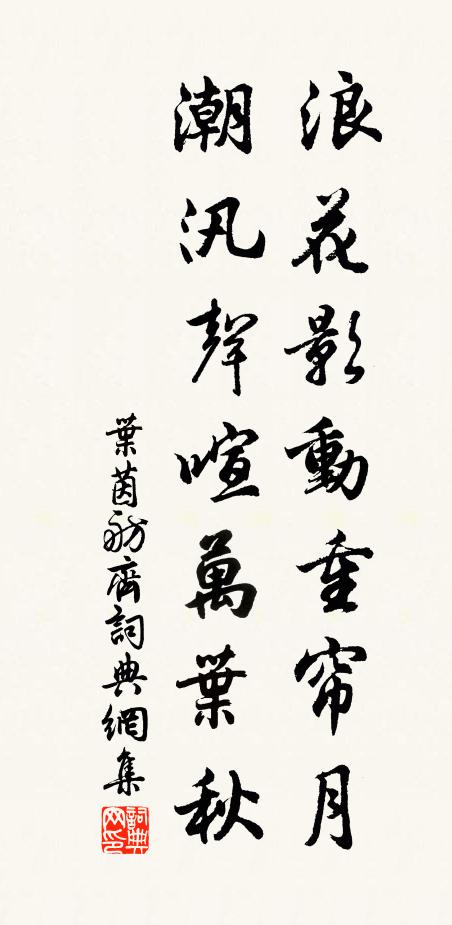 浪花影動重帘月
潮汎聲喧萬葉秋
葉茵舫齋詞典網集
詞典
网印